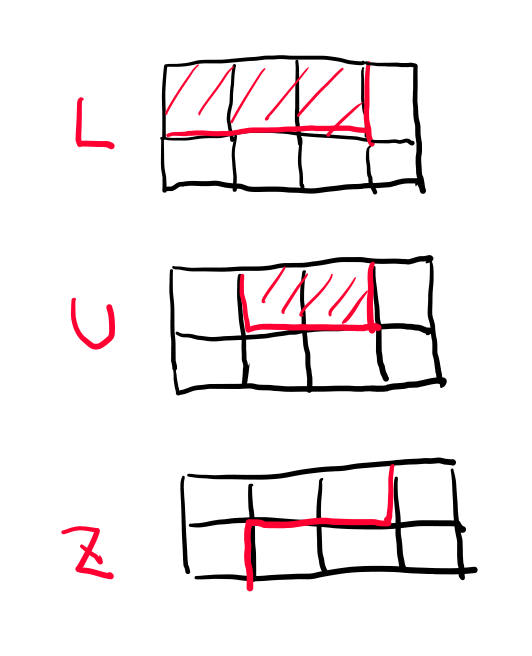 L
U
Z